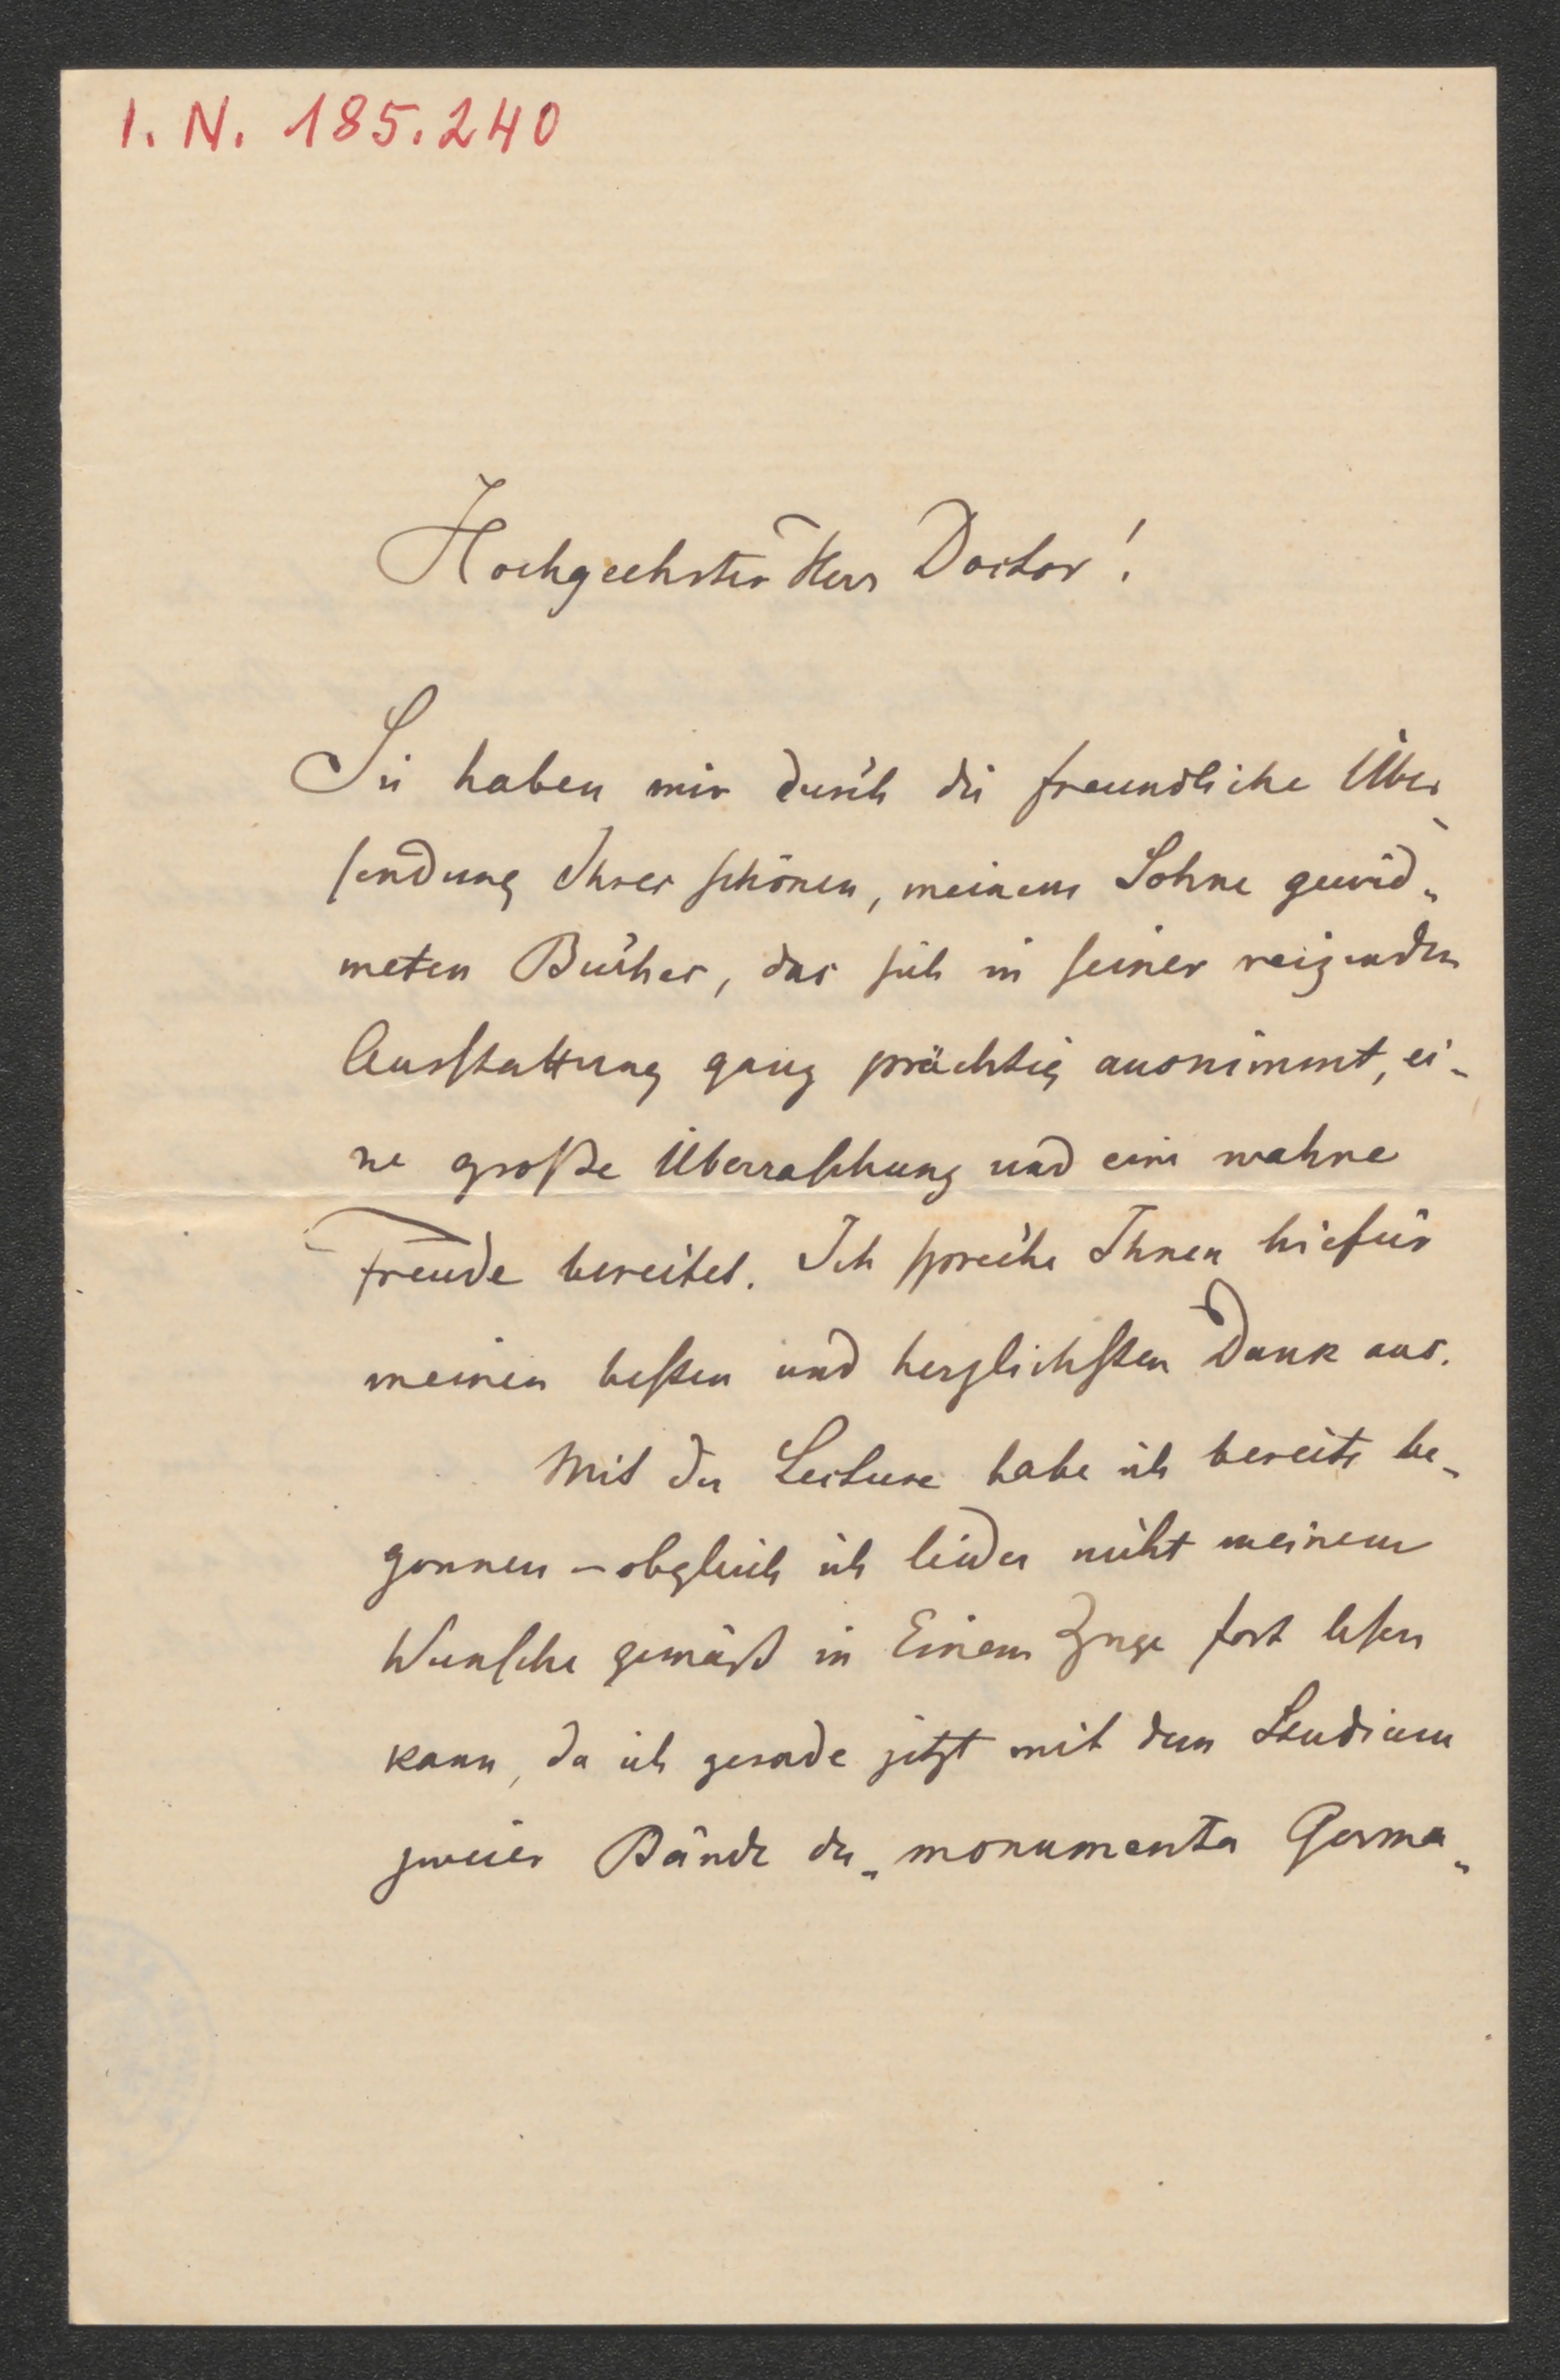 I. N. 185.240
Hochgeehrter Herr Doctor!
Sie haben mir durch die freundliche Über-
sendung Ihres schönen, meinem Sohne gewid-
meten Buches, das sich in seiner reizenden
Ausstattung ganz prächtig ausnimmt, ei-
ne große Überraschung und eine wahre
Freude bereitet. Ich spreche Ihnen hiefür
meinen besten und herzlichsten Dank aus.
Mit der Lecture habe ich bereits be-
gonnen – obgleich ich leider nicht meinem
Wunsche gemäß in Einem Zuge fort lesen
kann, da ich gerade jetzt mit dem Studium
zweier Bände der „monumenta Germa-